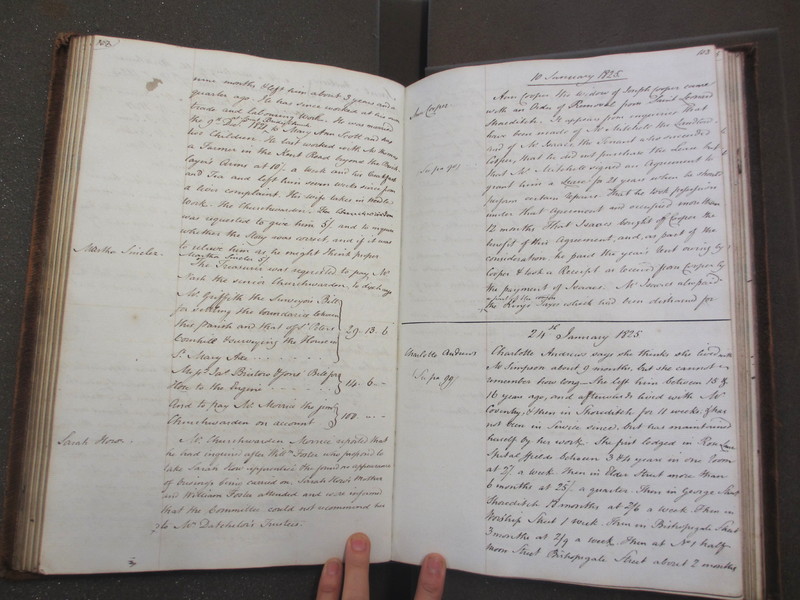 102
nine months & left him about 3 years and a
quarter ago. He has since worked at his own
trade and Labouring Work. He was married
the 9th 1821 to Mary Ann Scott and has
two Children. He last worked with Mr
a Farmer in the Kent Road beyond the Brick
layers Arms at 10/ a week and his breakfast
and Tea and left him seven weeks since from
a liver complaint. His wife takes in needle
work. The Churchwarden
was requested to give him 5/. and to enquire
whether the Story was correct and if it was
to relieve him as he might think proper.
Martha Sincler.
Martha Sincler 5/.
The Treasurer was requested to pay Mr
Nash the senior Churchwarden, to discharge
Mr. Griffith the Surveyors Bill
for the boundaries between
this Parish and that of St. Peters
Cornhill & surveying the Houses in
St. Mary Axe
29 . 13 . 6
Messrs. Bristow & Sons Bill for
Hose to the Engine
14 . 6 . -
And to pay Mr. Morrice the junr.
Churchwarden on account
100 . - . -
Sarah How.
Mr. Churchwarden Morrice reported that
he had enquired after Wm. Foster who proposed to
take Sarah How apprentice & he found no appearance
of business being carried on. Sarah How's Mother
and William Foster attended and were informed
that the Committee could not recommend her
to Mr. Datchelor's Trustees.
103
10 January 1825
Ann Cooper
Ann Cooper the widow of Joseph Cooper came
with an Order of Removal from Saint Leonard
Shoreditch. It appears from inquiries that
have been made of Mr. Mitchell the Landlord
and of Mr. Isaacs the Tenant who succeeded
Cooper, that he did not purchase the Lease but
Supra 98
that Mr. Mitchell signed an Agreement to
grant him a Lease for 21 years when he should
perform certain repairs. That he took possession
under that Agreement and occupied more than
12 months. That Isaacs bought of Cooper the
benefit of this Agreement, and, as part of the
consideration, he paid the years rent owing by
Cooper & took a Receipt as received from Cooper by
the payment of Isaacs. Mr. Isaacs also paid
as part of the
the Kings Taxes which had been distrained for
24th January 1825
Charlotte Andrews
Charlotte Andrews says she thinks she lived with
Mr Simpson about 9 months, but she cannot re
Supra 99
member how long. She left him between 15 &
16 year ago, and afterwards lived with Mr
Coventry, & then in Shoreditch for 11 weeks. & has
not been in Service since; but has maintained
herself by her work. She first lodged in Rose Lane
Spitalfields between 3 & 4 years in one Room
at 2/. a week. Then in Elder Street more than
6 months at 25/. a quarter. Then in George Street
Shoreditch 12 months at 2/6 a week. Then in
Worship Street 1 week. Then in Bishopsgate Street
3 months at 2/9 a week. Then at No. 1 half
moon Street Bishopsgate Street about 2 months